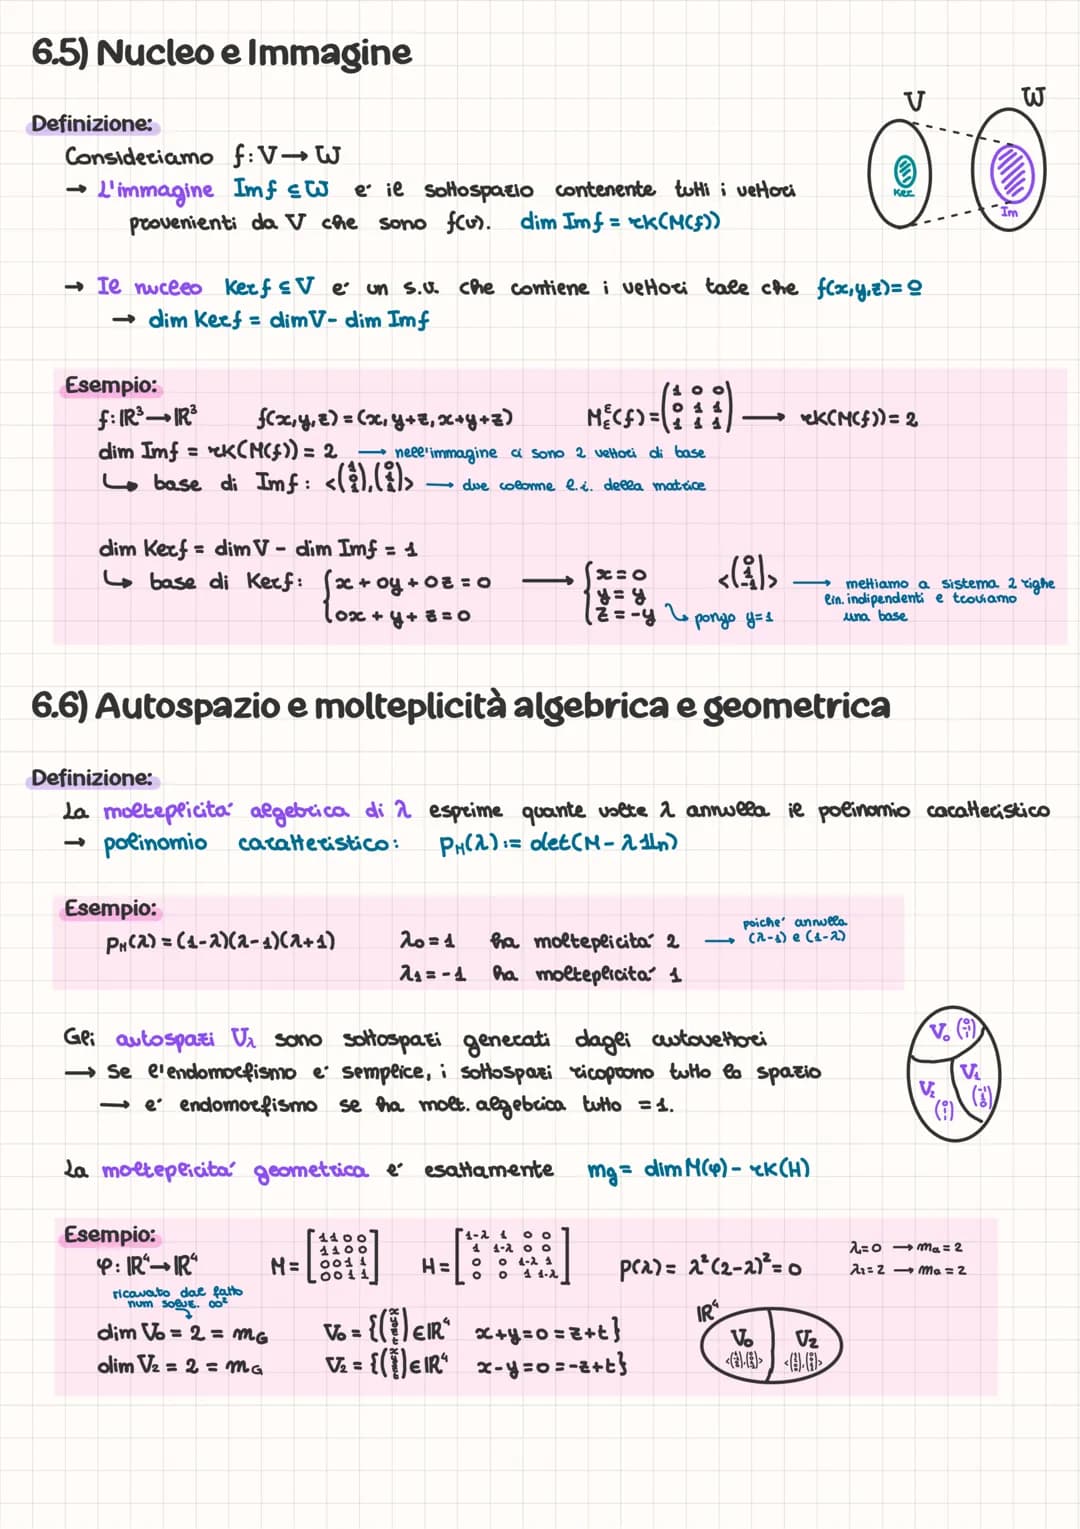 6.5) Nucleo e Immagine
V W
Definizione:
Consideriamo f: V → W
→ L'immagine Im f ⊆ W e' il sottospazio contenente tutti i vettori
Ker
Im
provenienti da V che sono f(v). dim Im f = rk(M(f))
→ Il nucleo Ker f ⊆ V e' un s.v. che contiene i vettori tale che f(x,y,z) = 0
→ dim Ker f = dim V - dim Im f
Esempio:
f: ℝ³ → ℝ³ f(x,y,z) = (x, y+z, x+y+z) M_ε^ε(f) = (1 0 0 / 0 1 1 / 1 1 1) → rk(M(f)) = 2
dim Im f = rk(M(f)) = 2 → nell'immagine ci sono 2 vettori di base
↳ base di Im f: <(1 0 1), (0 1 1)> → due colonne l.i. della matrice
dim Ker f = dim V - dim Im f = 1
↳ base di Ker f: { x + 0y + 0z = 0 → { x = 0 <(0 1 -1)> → mettiamo a sistema 2 righe
y = y lin. indipendenti e troviamo
0x + y + z = 0 z = -y ↳ pongo y=1 una base
6.6) Autospazio e molteplicità algebrica e geometrica
Definizione:
La molteplicita' algebrica di λ esprime quante volte λ annulla il polinomio caratteristico
→ polinomio caratteristico: P_M(λ) := det(M - λ 1Ln)
Esempio:
P_M(λ) = (1-λ)(λ-1)(λ+1) λ₀ = 1 ha molteplicita' 2 → poiche' annulla (λ-1) e (1-λ)
λ₁ = -1 ha molteplicita' 1
Gli autospazi V_λ sono sottospazi generati dagli autovettori
→ Se l'endomorfismo e' semplice, i sottospazi ricoprono tutto lo spazio
→ e' endomorfismo se ha molt. algebrica tutto = 1.
V₀ V₁ V₂
La molteplicita' geometrica e' esattamente mg = dim M(φ) - rk(H)
Esempio:
φ: ℝ⁴ → ℝ⁴ M = [1 1 0 0 / 1 1 0 0 / 0 0 1 1 / 0 0 1 1] H = [1-λ 1 0 0 / 1 1-λ 0 0 / 0 0 1-λ 1 / 0 0 1 1-λ] P(λ) = λ²(2-λ)² = 0 λ=0 → ma = 2
λ₁=2 → ma = 2
ricavato dal fatto
num soluz. ∞²
dim V₀ = 2 = mG V₀ = {(x y z t) ∈ ℝ⁴ x+y=0=z+t}
dim V₂ = 2 = mG V₂ = {(x y z t) ∈ ℝ⁴ x-y=0=-z+t}
ℝ⁴
V₀ V₂